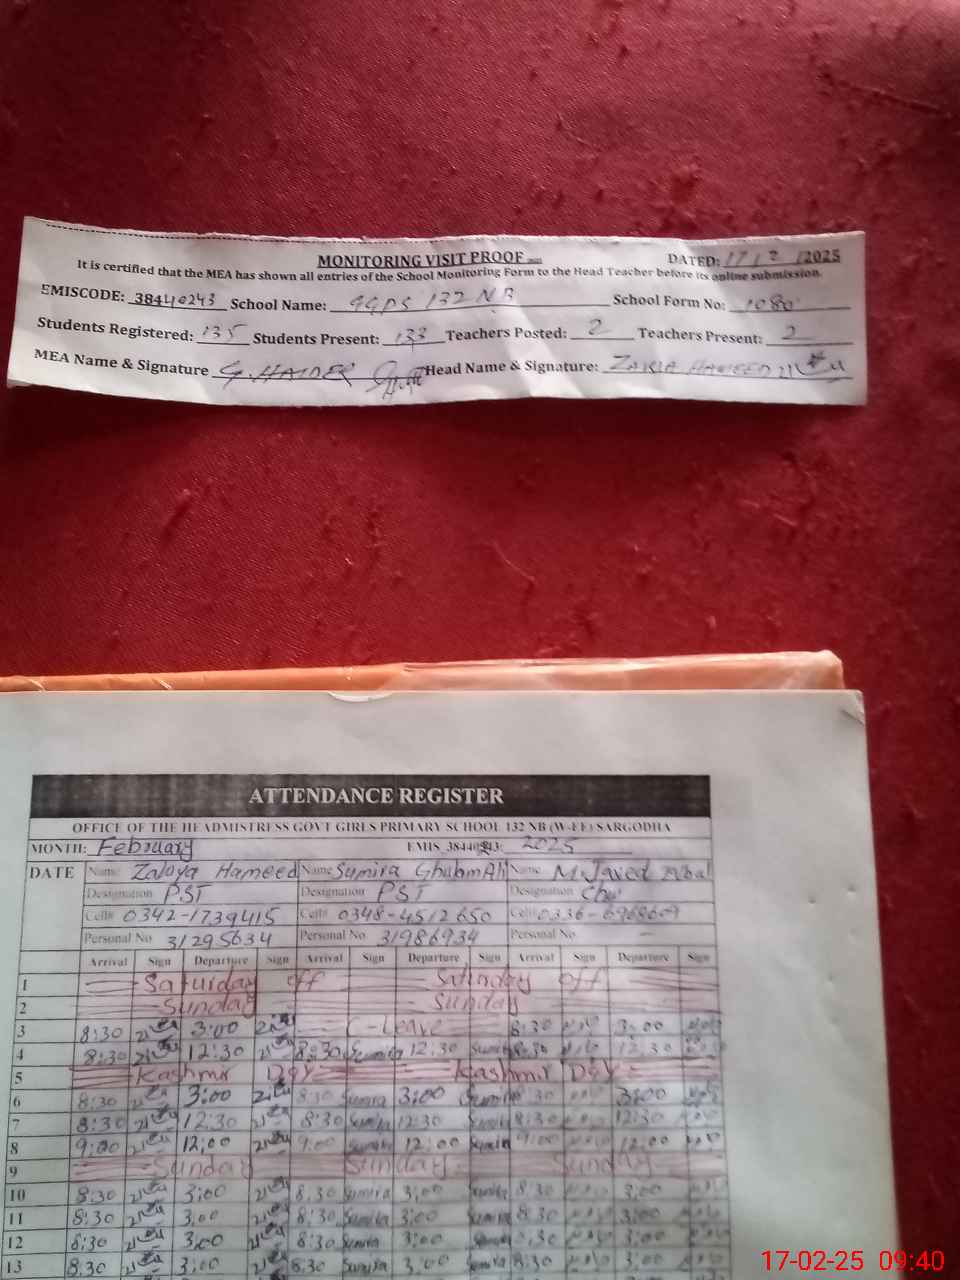 MONITORING VISIT PROOF DATED: 17/2/2025
It is certified that the MEA has shown all entries of the School Monitoring Form to the Head Teacher before its online submission.
EMISCODE: 38440243 School Name: GGPS 132 NB School Form No: 1080
Students Registered: 135 Students Present: 133 Teachers Posted: 2 Teachers Present: 2
MEA Name & Signature G. HAIDER Head Name & Signature: HAMEED
ATTENDANCE REGISTER
OFFICE OF THE HEADMISTRESS GOVT GIRLS PRIMARY SCHOOL 132 NB (W-EE) SARGODHA
MONTH: February EMIS 2025
DATE Name Hameed Name Sumira Ghulam Ali Name M.Javed
Designation PST Designation PST Designation
Cell# 0342-1739415 Cell# 0348-4512650 Cell# 0336-
Personal No 31295634 Personal No 31986934 Personal No —
Arrival Sign Departure Sign Arrival Sign Departure Sign Arrival Sign Departure Sign
1 Saturday off Saturday off
2 Sunday Sunday
3 8:30 3:00 C-Leave 8:30 3:00
4 8:30 12:30 8:30 Sumira 12:30 Sumira 8:30 12:30
5 Kashmir Day Kashmir Day
6 8:30 3:00 8:30 Sumira 3:00 Sumira 8:30 3:00
7 8:30 12:30 8:30 Sumira 12:30 Sumira 8:30 12:30
8 9:00 12:00 9:00 Sumira 12:00 Sumira 9:00 12:00
9 Sunday Sunday Sunday
10 8:30 3:00 8:30 Sumira 3:00 Sumira 8:30 3:00
11 8:30 3:00 8:30 Sumira 3:00 Sumira 8:30 3:00
12 8:30 3:00 8:30 Sumira 3:00 Sumira 8:30 3:00
13 8:30 3:00 8:30 Sumira 3:00 Sumira 8:30 3:00
17-02-25 09:40